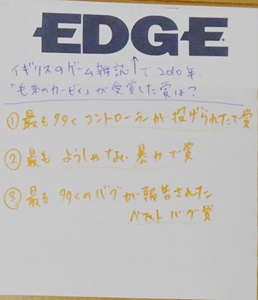 EDGE
イギリスのゲーム雑誌↑で2010年
「毛糸のカービィ」が受賞した賞は?
① 最も多くコントローラーが投げられたで賞
② 最も ようしゃない 暴力で賞
③ 最も 多くのバグが報告された
ベストバグ賞